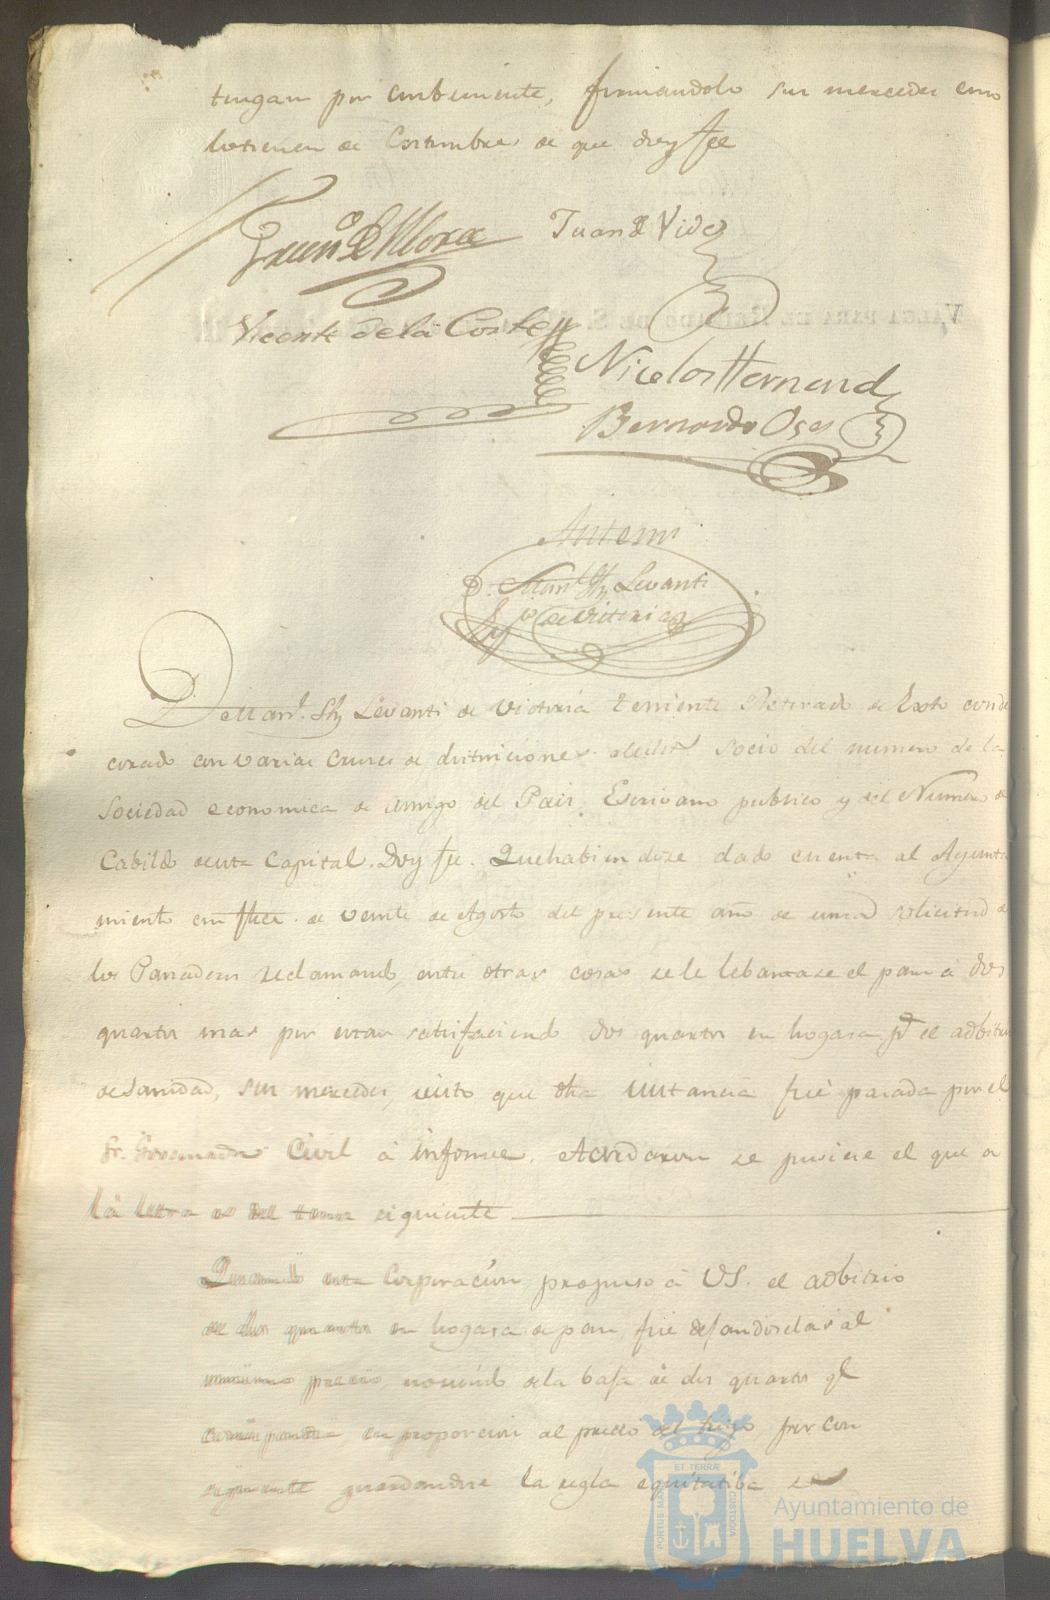 tengan por combeniente, firmandolo sus mercedes como
lo tienen de Costumbre, de que doy fee
Franco de Mora Juan de Vides
VALGA PARA EL REINADO DE S.
Vicente de la Corte
Nicolas Hernand
Bernardo Oses
Antemi
Man.l Levanti
de Vitoria
D. Man.l Levanti de Victoria Teniente Retirado de Exto conde
corado con varias Cruces de distinciones Socio del numero de la
Sociedad economica de Amigo del Pais, Escrivano publico y del Numero de
Cabildo de esta Capital. Doy fe. Que habiendose dado cuenta al Ayunta
miento en de veinte de Agosto del presente año de una solicitud de
los Panaderos reclamando, entre otras cosas se le lebantase el pan á dos
quartos mas por estar satisfaciendo dos quartos en hogasa pr. el adbitrio
de Sanidad, sus mercedes, visto que dha instancia fué pasada por el
Sr. Governador Civil á informe. Acordaron se pusiese el que a
la letra es del tenor siguiente
Quando esta Corporacion propuso á V.S. el adbitrio
de dos quartos en hogasa de pan, fue dejandoselas al
mismo precio, usando de la baja de dos quartos ql
corresponde, en proporcion al precio del trigo, por con
siguiente guardandose la regla equitatiba
PORTUS MARIS ET TERRÆ CUSTODIA
Ayuntamiento de
HUELVA